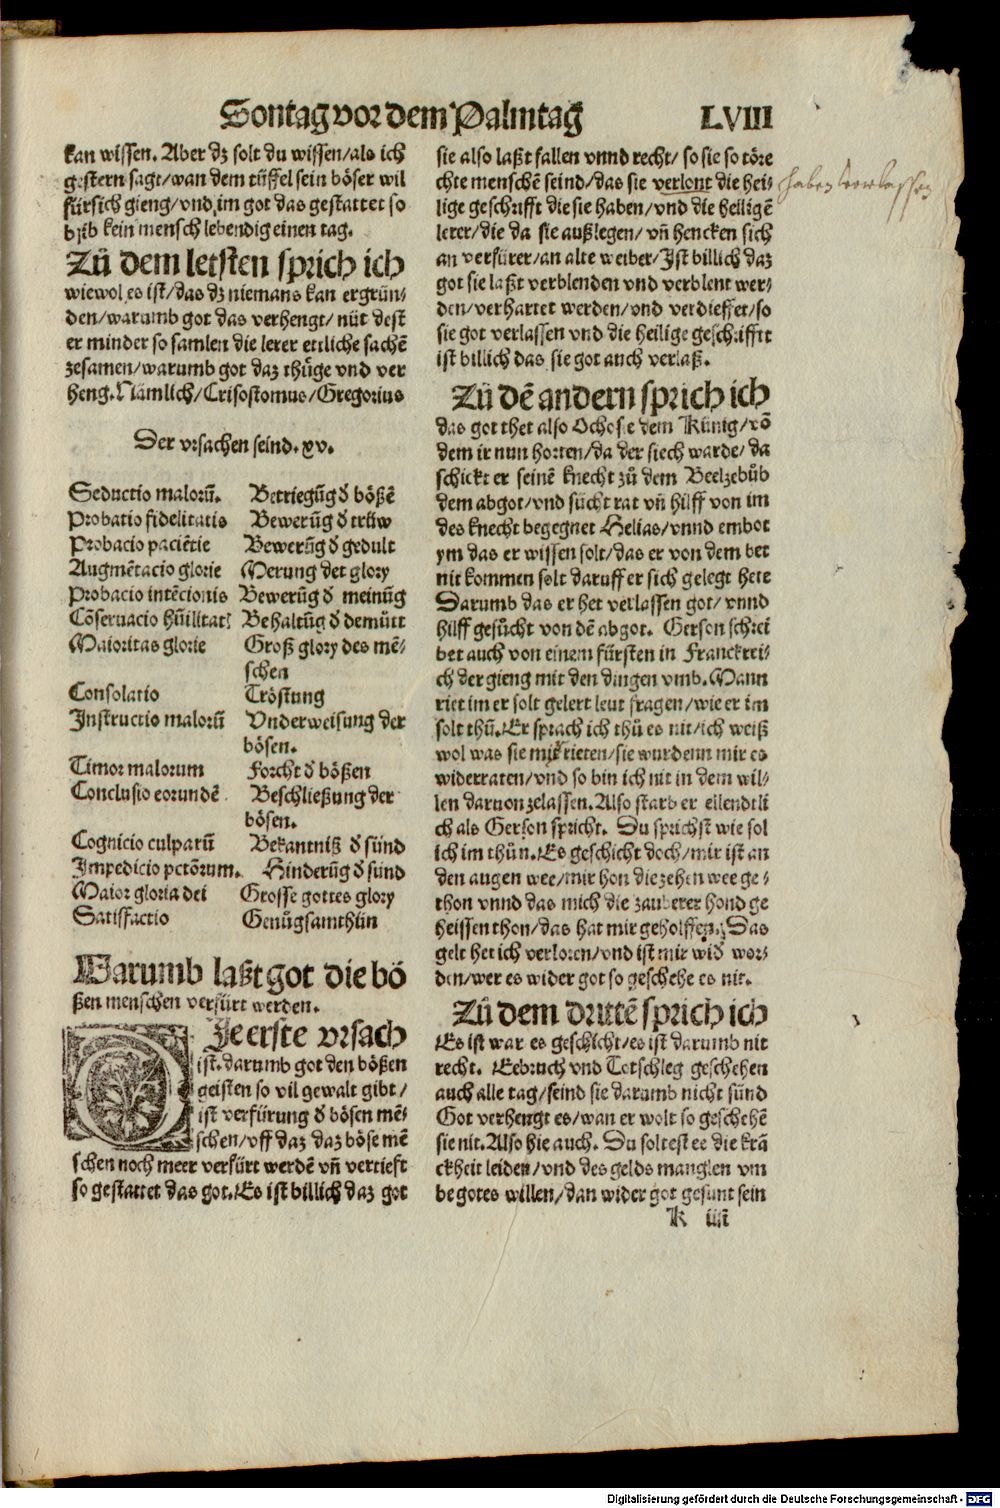 Sontag vor dem Palmtag LVIII
kan wissen. Aber dz solt du wissen/als ich
gestern sagt/wan dem tüffel sein böser wil
fürsich gieng/vnd im got das gestattet so
blib kein mensch lebendig einen tag.
Zů dem letsten sprich ich
wiewol es ist/das dz niemans kan ergrün⸗
den/warumb got das verhengt/nüt dest
er minder so samlen die lerer ettliche sachē
zesamen/warumb got daz thüge vnd ver
heng. Nämlich/Crisostomus/Gregorius
Der vrsachen seind. xv.
Seductio malorū. Betriegūg d̕ bößē
Probatio fidelitatis Bewerūg d̕ trüw
Probacio paciētie Bewerūg d̕ gedult
Augmētacio glorie Merung der glory
Probacio intēcionis Bewerūg d̕ meinūg
Cōseruacio hūilitat? Behaltūg d̕ demütt
Maioritas glorie Groß glory des mē⸗
schen
Consolatio Tröstung
Instructio malorū Vnderweisung der
bösen.
Timor malorum Forcht d̕ bößen
Conclusio eorundē Beschließung der
bösen.
Cognicio culparū Bekantniß d̕ sünd
Impedicio pctōrum. Hinderūg d̕ sünd
Maior gloria dei Grosse gottes glory
Satisfactio Genůgsamthūn
Warumb laßt got die bö
ßen menschen verfürt werden.
DJe erste vrsach
ist. darumb got den bößen
geisten so vil gewalt gibt/
ist verfürung d̕ bösen mē⸗
schen/vff daz daz böse mē
schen noch meer verfürt werdē vn̄ vertieft
so gestattet das got. Es ist billich daz got
sie also laßt fallen vnnd recht/so sie so töre
chte menschē seind/das sie verlont die hei⸗
lige geschrifft die sie haben/vnd die heiligē
lerer/die da sie außlegen/vn̄ hencken sich
an verfürer/an alte weiber/Jst billich daz
got sie laßt verblenden vnd verblent wer⸗
den/verhartet werden/vnd verdieffet/so
sie got verlassen vnd die heilige geschrifft
ist billich das sie got auch verlaß.
haben verlassen
Zů dē andern sprich ich
das got thet also Ochosie dem Künig/vō
dem ir nun horten/da der siech warde/da
schickt er seinē knecht zů dem Beelzebůb
dem abgot/vnd sücht rat vn̄ hilff von im
des knecht begegnet Helias/vnnd embot
ym das er wissen solt/das er von dem bet
nit kommen solt daruff er sich gelegt hete
Darumb das er het verlassen got/vnnd
hilff gesůcht von dē abgot. Gerson schrei
bet auch von einem fürsten in Franckrei⸗
ch der gieng mit den dingen vmb. Mann
riet im er solt gelert leut fragen/wie er im
solt thů. Er sprach ich thů es nit/ich weiß
wol was sie mir rieten/sie wurdenn mir es
widerraten/vnd so bin ich nit in dem wil⸗
len daruon zelassen. Also starb er ellendtli
ch als Gerson spricht. Du sprichst wie sol
ich im thůn. Es geschicht doch/mir ist an
den augen wee/mir hon die zehen wee ge⸗
thon vnnd das mich die zauberer hond ge
heissen thon/das hat mir geholffen. Das
gelt het ich verloren/vnd ist mir wid̕ wor⸗
den/wer es wider got so geschehe es nit.
Zů dem drittē sprich ich
Es ist war es geschicht/es ist darumb nit
recht. Eebruch vnd Totschleg geschehen
auch alle tag/seind sie darumb nicht sünd
Got verhengt es/wan er wolt so geschehē
sie nit. Also hie auch. Du soltest ee die krā
ckheit leiden/vnd des gelds manglen vm
be gotes willen/dan wider got gesunt sein
K iiij
Digitalisierung gefördert durch die Deutsche Forschungsgemeinschaft - DFG